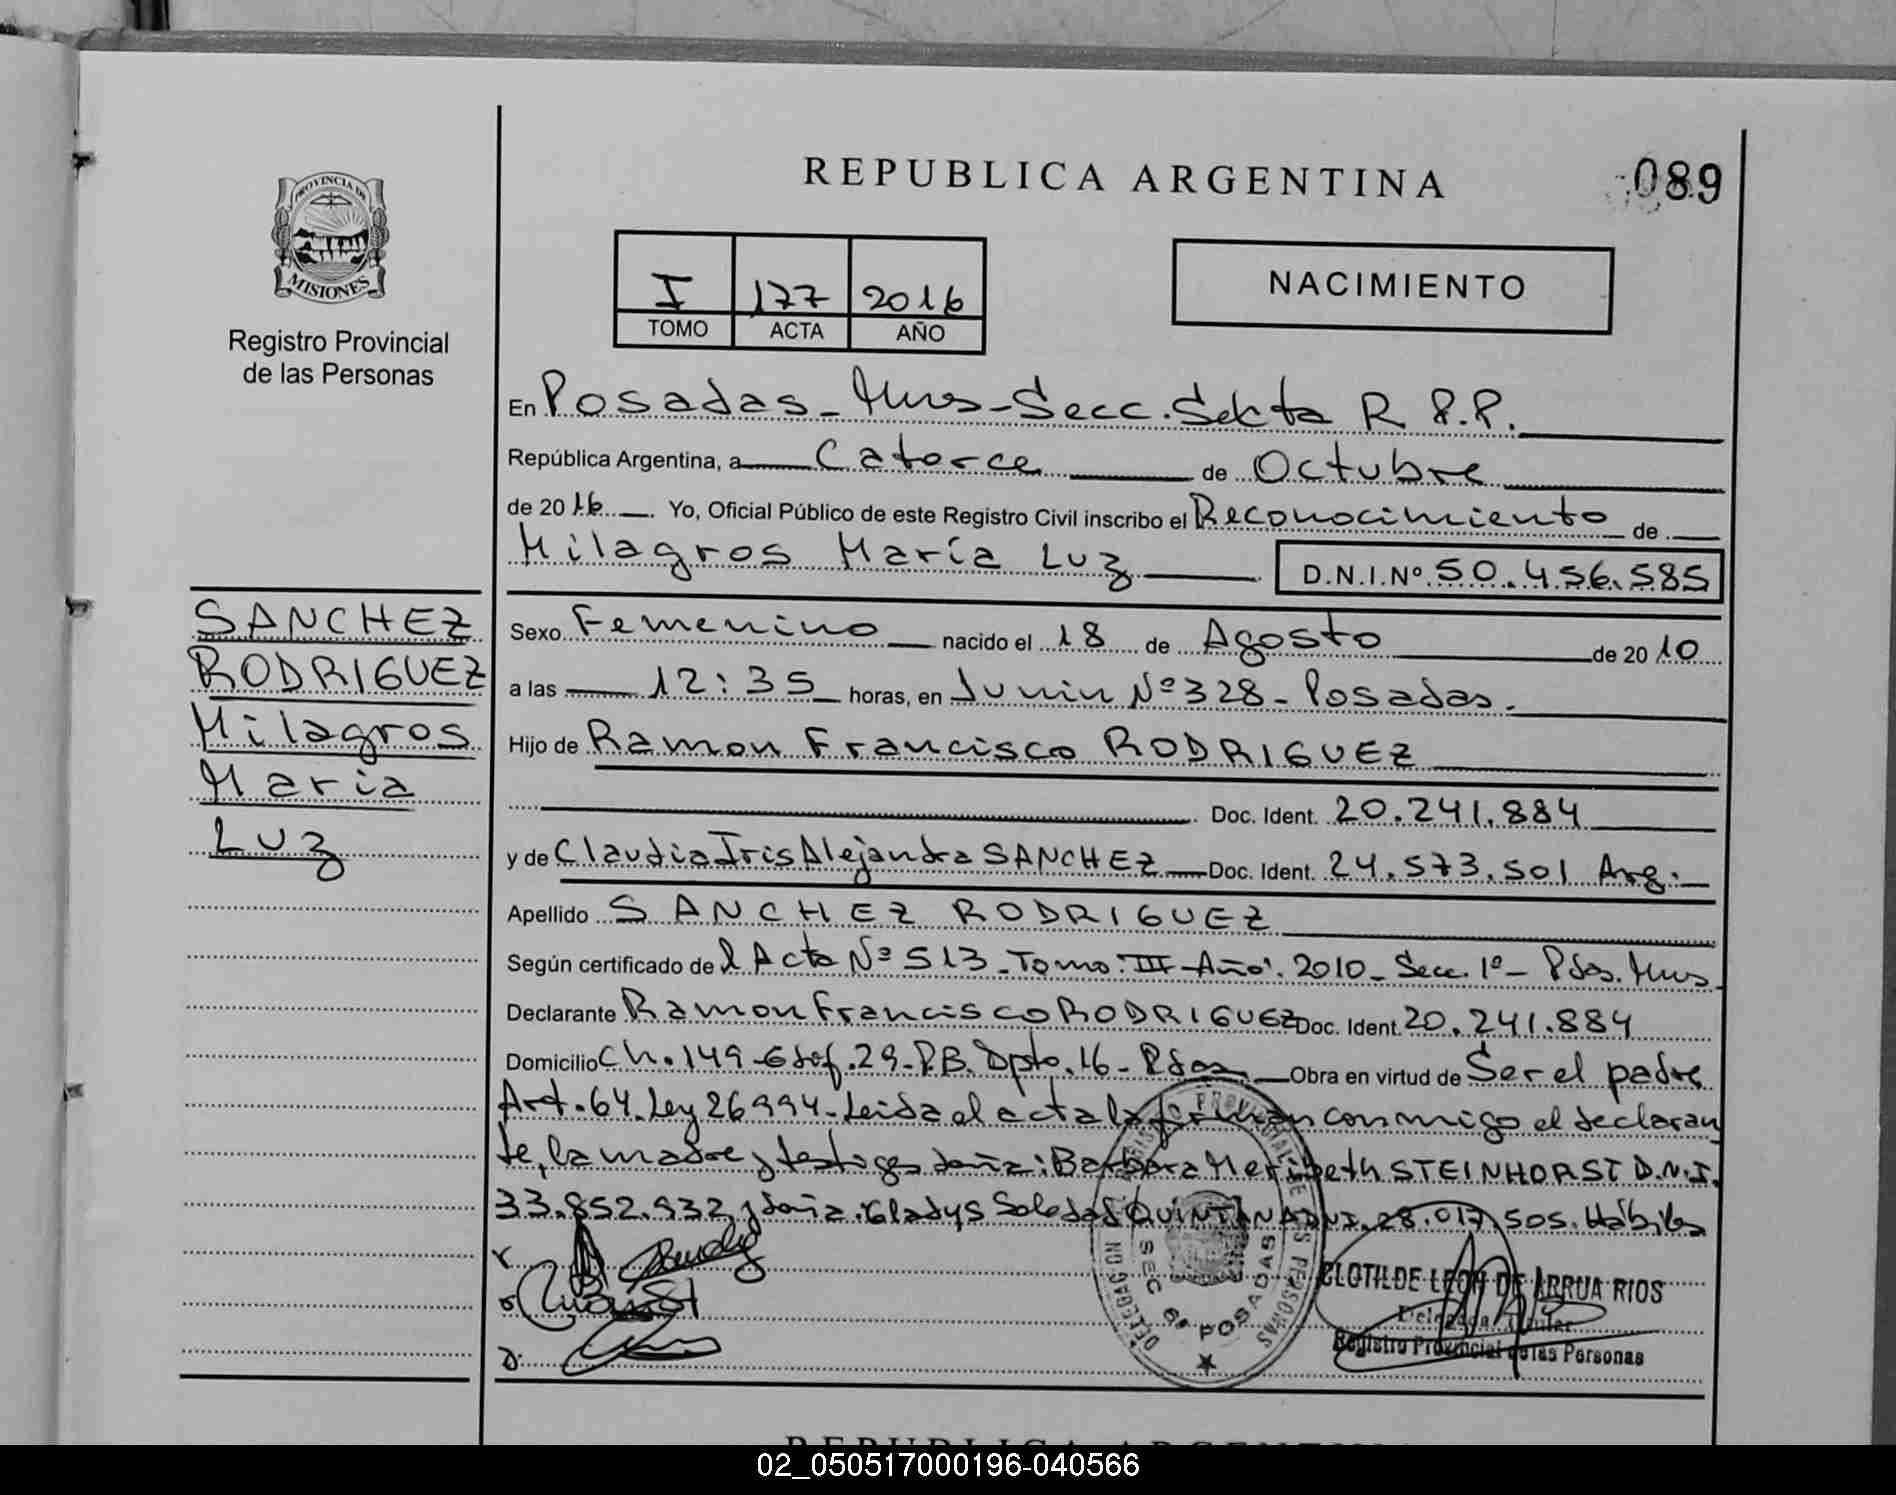 REPUBLICA ARGENTINA
089
PROVINCIA DE
MISIONES
Registro Provincial
de las Personas
I 177 2016
TOMO ACTA AÑO
NACIMIENTO
En Posadas - Mnes - Secc. Sexta R.P.P.
República Argentina, a Catorce de Octubre
de 2016. Yo, Oficial Público de este Registro Civil inscribo el Reconocimiento de
Milagros María Luz D.N.I.Nº 50.456.585
SANCHEZ
RODRIGUEZ
Milagros
María
Luz
Sexo Femenino nacido el 18 de Agosto de 2010
a las 12:35 horas, en Junin Nº 328 - Posadas.
Hijo de Ramon Francisco RODRIGUEZ
Doc. Ident. 20.241.884
y de Claudia Iris Alejandra SANCHEZ Doc. Ident. 24.573.501 Arg.
Apellido SANCHEZ RODRIGUEZ
Según certificado del Acta Nº 513 - Tomo: III - Año: 2010 - Secc. 1º - Pdas. Mnes
Declarante Ramon Francisco RODRIGUEZ Doc. Ident. 20.241.884
Domicilio Ch. 149 - Edif. 29 - P.B. Dpto. 16 - Pdas Obra en virtud de Ser el padre
Art. 64. Ley 26994 - Leida el acta la firman conmigo el declaran
te, la madre y testigos doña: Barbara Meribeth STEINHORST D.N.I.
33.852.932 y doña: Gladys Soledad QUINTANA DNI. 28.017.505. Hábiles
REGISTRO PROVINCIAL DE LAS PERSONAS
DELEGACION
SEC 6ª POSADAS
CLOTILDE LEON DE ARRUA RIOS
Delegada Titular
Registro Provincial de las Personas
REPUBLICA ARGENTINA
02_050517000196-040566